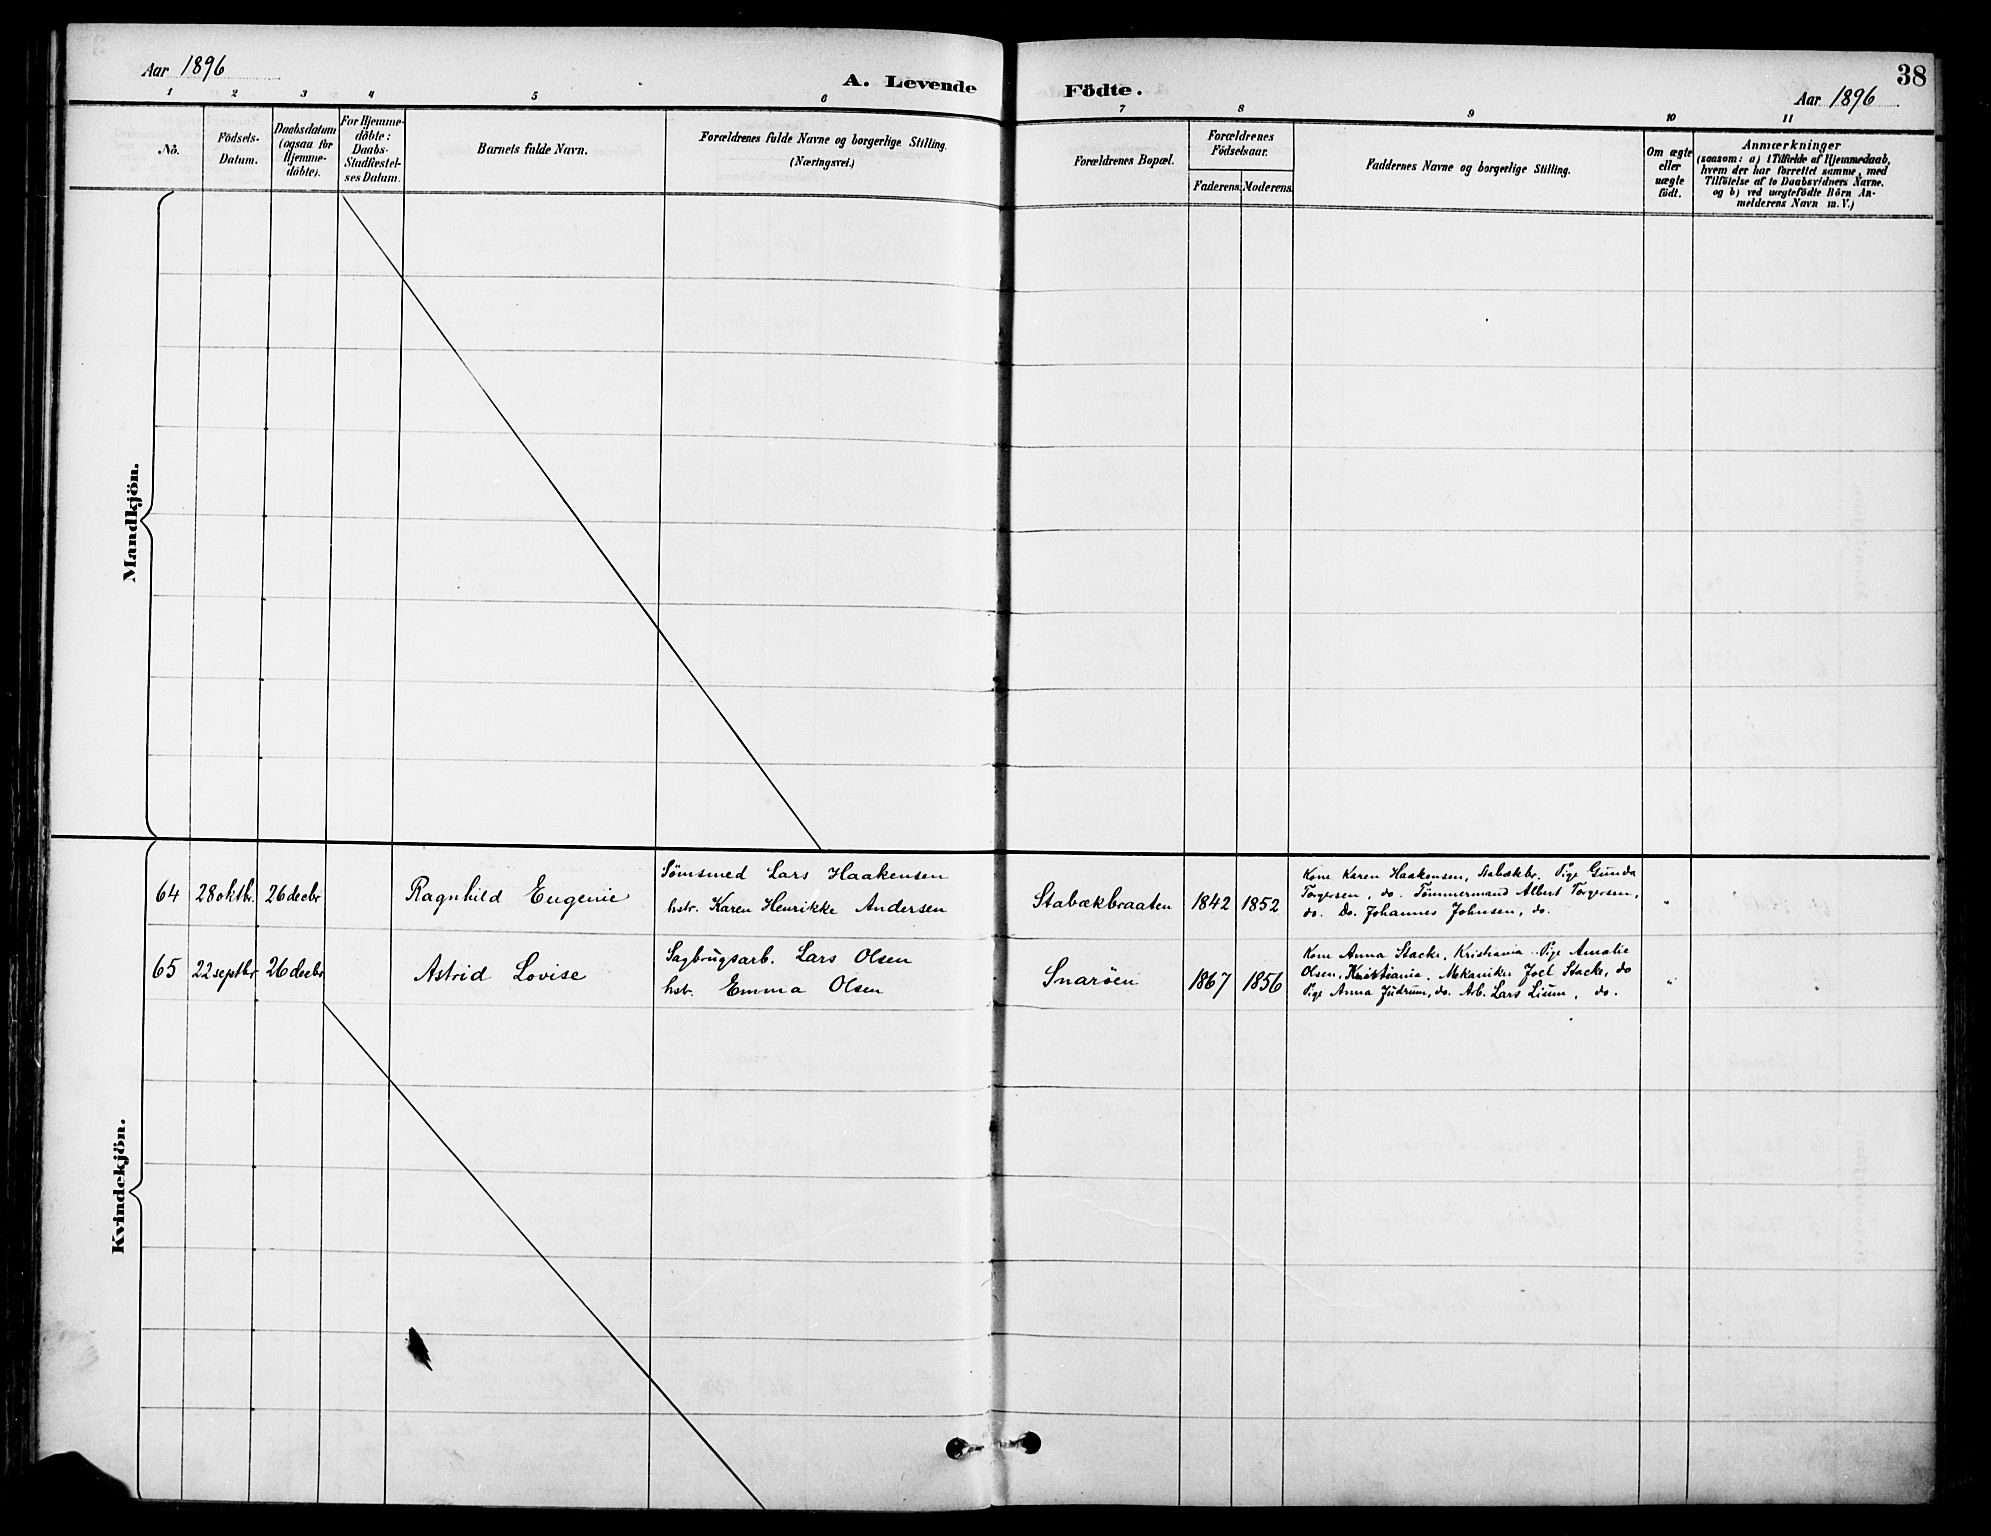 Aar 1896
A. Levende
Födte.
38
Aar 1896
1 2 3 4 5 6 7 8 9 10 11
No.
Födsels-
Datum.
Daabsdatum
(ogsaa for
Hjemme-
döbte).
For Hjemme-
döbte:
Daabs-
Stadfæstel-
ses Datum.
Barnets fulde Navn.
Forældrenes fulde Navne og borgerlige Stilling.
(Næringsvei.)
Forældrenes Bopæl.
Forældrenes
Födselsaar.
Faderens.
Moderens.
Faddernes Navne og borgerlige Stilling.
Om ægte
eller
uægte
födt.
Anmærkninger
(saasom: a) i Tilfælde af Hjemmedaab,
hvem der har forrettet samme, med
Tilföielse af to Daabsvidners Navne.
og b) ved uægtefödte Börn An-
melderens Navn m. V.)
Mandkjön.
Kvindekjön.
64 28 oktbr. 26 decbr Ragnhild Eugenie
Sømsmed Lars Haakensen
hstr. Karen Henrikke Andersen
Stabækbraaten 1842 1852
Kone Karen Haakensen, Stabækbr. Pige Gunda
Torgersen, do. Tømmermand Albert Torgersen,
do. Do. Johannes Johnsen, do.
"
65 22 septbr 26 decbr Astrid Lovise
Sagbrugsarb. Lars Olsen
hstr. Emma Olsen
Snarøen 1867 1856
Kone Anna Stacke, Kristiania. Pige Amalie
Olsen, Kristiania. Mekaniker Joel Stacke, do
Pige Anna Judrum, do. Arb. Lars Lium, do.
"